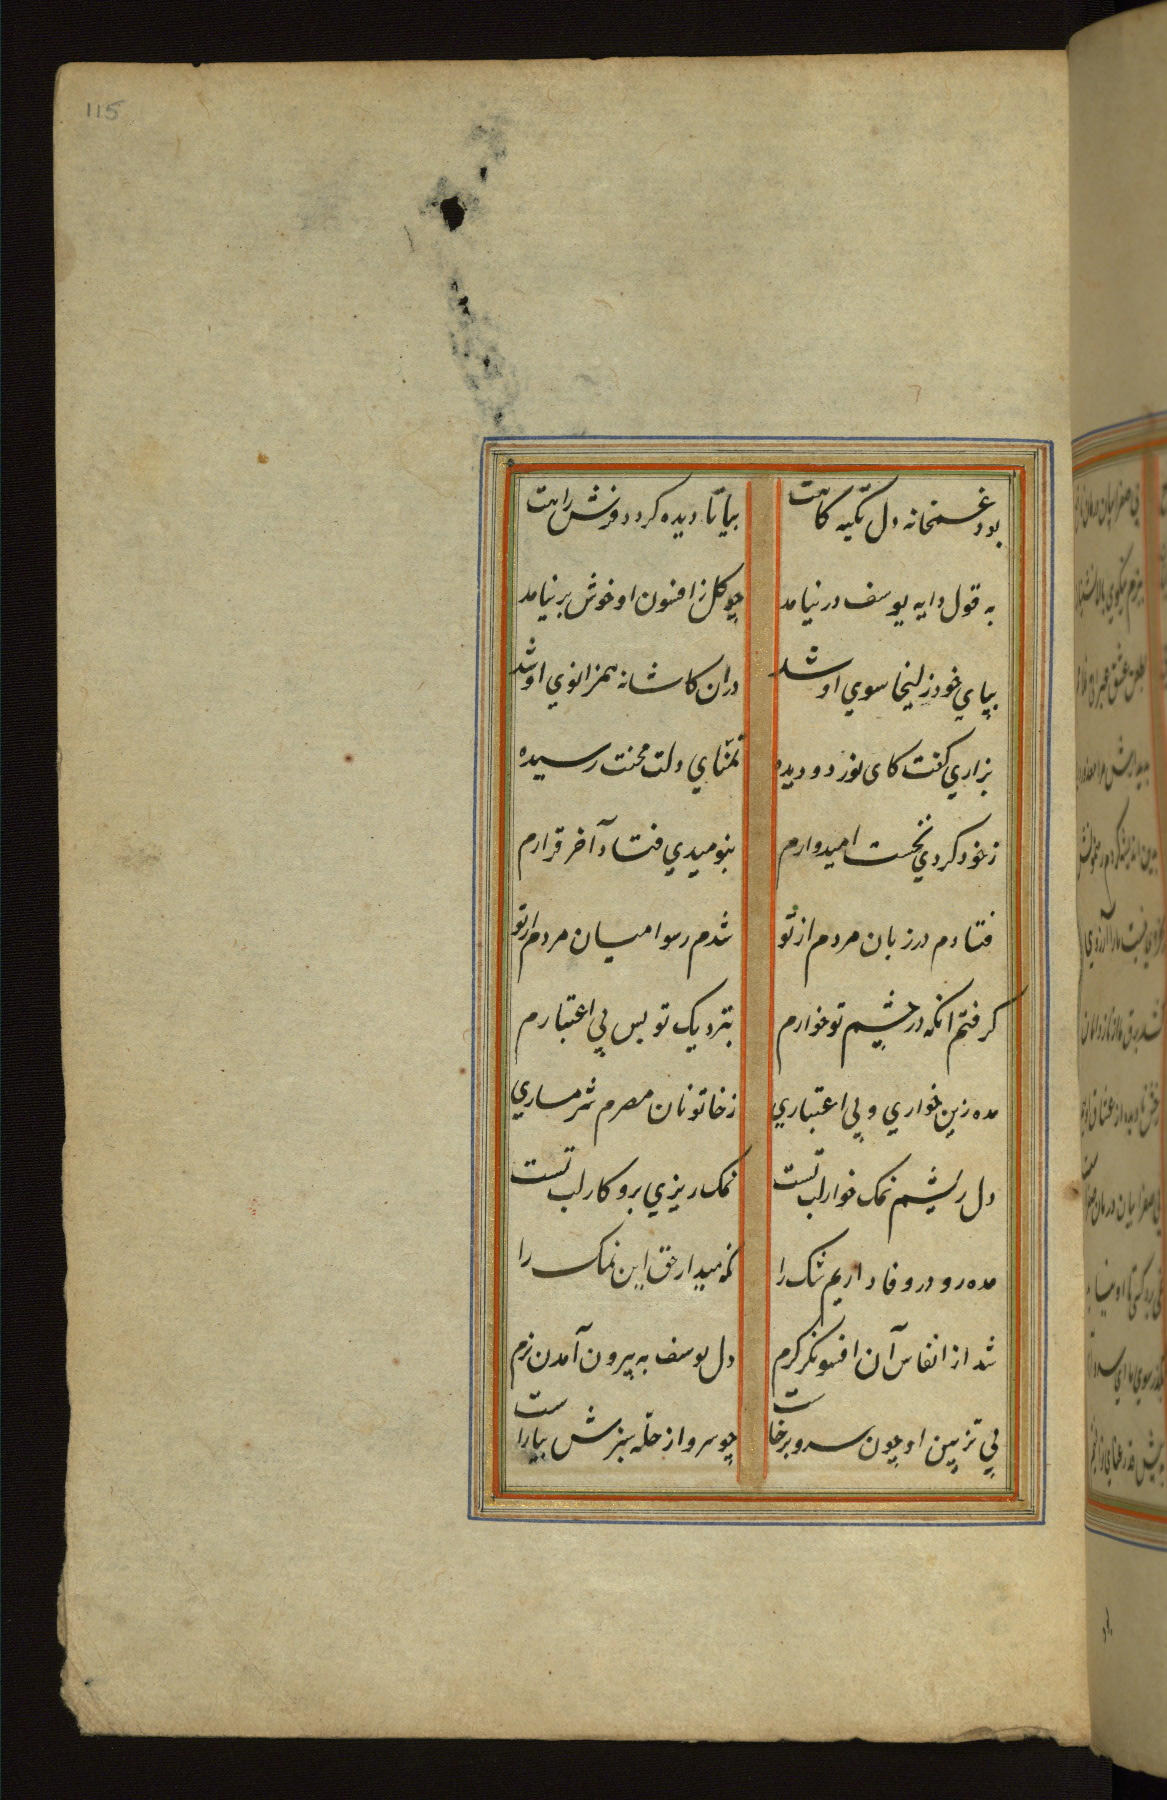 115
بود غمخانه دل تکیه کاهت بیا تا دیده کردد فرش راهت
به قول دایه یوسف در نیامد چو کل ز افسون او خوش بر نیامد
بپاي خود زلیخا سوي او شد دران کاشانه همزانوي او شد
بزاري کفت کای نور دو دیده تمنّاي دلت محنت رسیده
ز خود کردي نخست امیدوارم بنومیدي فتاد آخر قرارم
فتادم در زبان مردم از تو شدم رسوا میان مردم از تو
کرفتم انکه در چشم تو خوارم بنزدیک تو بس بی اعتبارم
مده زین خواري و بی اعتباري ز خاتونان مصرم شرمساري
دل ریشم نمک خوار لب تست نمک ریزي برو کار لب تست
مده رو در وفاداریم شک را نکه میدار حق این نمک را
شد از انفاس آن افسونکر کرم دل یوسف به بیرون آمدن نرم
پي تزیین او چون سرو برخاست چو سرو از حلّه سبزش بیاراست